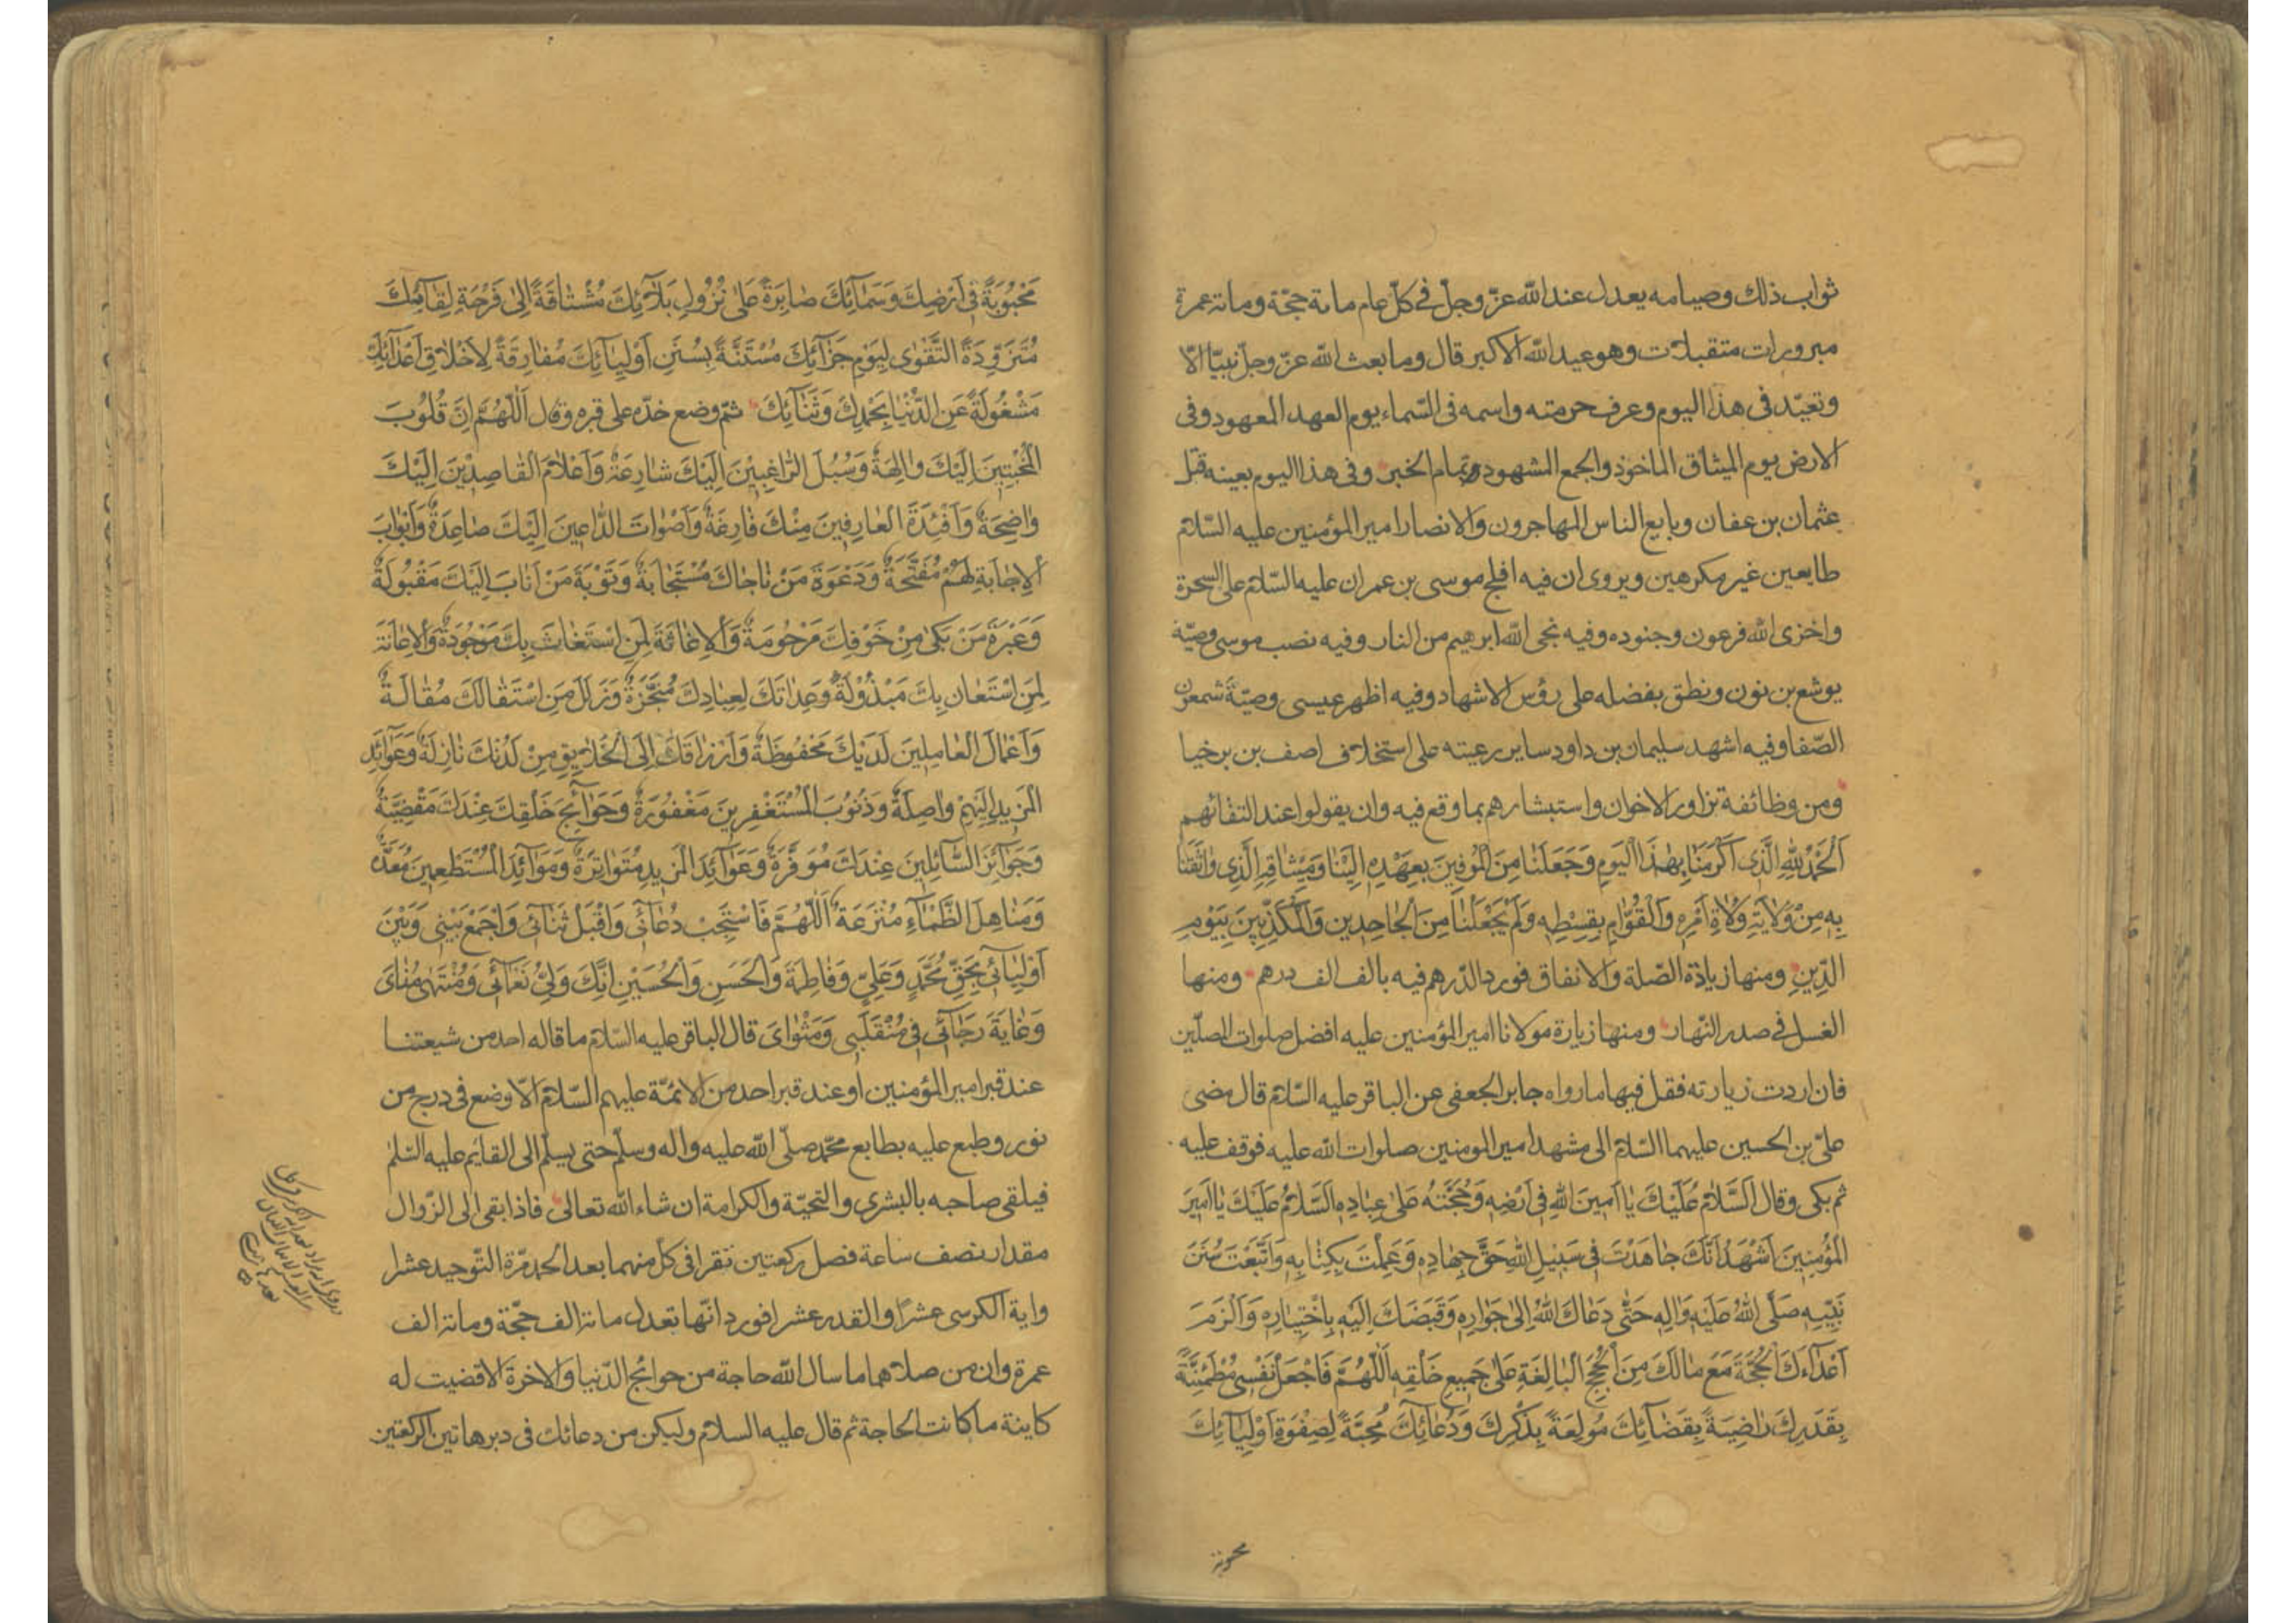 ثواب ذلك وصيامه يعدل عند الله عزّ وجلّ في كلّ عام مائة حجّة ومائة عمرة
مبرورات متقبلات وهو عيد الله الاكبر قال وما بعث الله عزّ وجلّ نبيّا الّا
وتعيّد في هذا اليوم وعرف حرمته واسمه في السّماء يوم العهد المعهود وفى
الارض يوم الميثاق الماخوذ والجمع المشهود وتمام الخبر وفى هذا اليوم بعينه قتل
عثمان بن عفان وبايع الناس المهاجرون والانصار امير المؤمنين عليه السّلام
طايعين غير مكرهين ويروى ان فيه افلج موسى بن عمران عليه السّلام على السحرة
واخزى الله فرعون وجنوده وفيه نجى الله ابرهيم من النار وفيه نصب موسى وصيّة
يوشع بن نون ونطق بفضله على رؤس الاشهاد وفيه اظهر عيسى وصيّة شمعون
الصّفا وفيه اشهد سليمان بن داود ساير رعيته على استخلاف اصف بن برخيا
ومن وظائفه تزاور الاخوان واستبشارهم بما وقع فيه وان يقولوا عند التقائهم
اَلْحَمْدُ لِلهِ الَّذِى اَكْرَمَنَا بِهٰذَا الْيَوْمِ وَجَعَلَنَا مِنَ الْمُوفِينَ بِعَهْدِهِ اِلَيْنَا وَمِيثَاقِهِ الَّذِى وَاثَقَنَا
بِهِ مِنْ وِلَايَةِ وُلَاةِ اَمْرِهِ وَالْقُوَّامِ بِقِسْطِهِ وَلَمْ يَجْعَلْنَا مِنَ الْجَاحِدِينَ وَالْمُكَذِّبِينَ بِيَوْمِ
الدِّينِ ومنها زيادة الصّلة والانفاق فورد الدّرهم فيه بالف الف درهم ومنها
الغسل في صدر النّهار ومنها زيارة مولانا امير المؤمنين عليه افضل صلوات المصلّين
فان اردت زيارته فقل فيها ما رواه جابر الجعفى عن الباقر عليه السّلام قال مضى
علىّ بن الحسين عليهما السّلام الى مشهد امير المومنين صلوات الله عليه فوقف عليه
ثم بكى وقال اَلسَّلَامُ عَلَيْكَ يَا اَمِينَ اللهِ فِى اَرْضِهِ وَحُجَّتَهُ عَلَى عِبَادِهِ اَلسَّلَامُ عَلَيْكَ يَا اَمِيرَ
الْمُؤْمِنِينَ اَشْهَدُ اَنَّكَ جَاهَدْتَ فِى سَبِيلِ اللهِ حَقَّ جِهَادِهِ وَعَمِلْتَ بِكِتَابِهِ وَاتَّبَعْتَ سُنَنَ
نَبِيِّهِ صَلَّى اللهُ عَلَيْهِ وَاٰلِهِ حَتَّى دَعَاكَ اللهُ اِلَى جَوَارِهِ وَقَبَضَكَ اِلَيْهِ بِاخْتِيَارِهِ وَاَلْزَمَ
اَعْدَاءَكَ الْحُجَّةَ مَعَ مَا لَكَ مِنَ الْحُجَجِ الْبَالِغَةِ عَلَى جَمِيعِ خَلْقِهِ اَللّٰهُمَّ فَاجْعَلْ نَفْسِى مُطْمَئِنَّةً
بِقَدَرِكَ رَاضِيَةً بِقَضَائِكَ مُولَعَةً بِذِكْرِكَ وَدُعَائِكَ مُحِبَّةً لِصَفْوَةِ اَوْلِيَائِكَ
محبوبة
مَحْبُوبَةً فِى اَرْضِكَ وَسَمَائِكَ صَابِرَةً عَلَى نُزُولِ بَلَائِكَ مُشْتَاقَةً اِلَى فَرْحَةِ لِقَائِكَ
مُتَزَوِّدَةً التَّقْوَى لِيَوْمِ جَزَائِكَ مُسْتَنَّةً بِسُنَنِ اَوْلِيَائِكَ مُفَارِقَةً لِاَخْلَاقِ اَعْدَائِكَ
مَشْغُولَةً عَنِ الدُّنْيَا بِحَمْدِكَ وَثَنَائِكَ ثمّ وضع خدّه على قبره وقال اَللّٰهُمَّ اِنَّ قُلُوبَ
الْمُخْبِتِينَ اِلَيْكَ وَالِهَةٌ وَسُبُلَ الرَّاغِبِينَ اِلَيْكَ شَارِعَةٌ وَاَعْلَامَ الْقَاصِدِينَ اِلَيْكَ
وَاضِحَةٌ وَاَفْئِدَةَ الْعَارِفِينَ مِنْكَ فَازِعَةٌ وَاَصْوَاتَ الدَّاعِينَ اِلَيْكَ صَاعِدَةٌ وَاَبْوَابَ
الْاِجَابَةِ لَهُمْ مُفَتَّحَةٌ وَدَعْوَةَ مَنْ نَاجَاكَ مُسْتَجَابَةٌ وَتَوْبَةَ مَنْ اَنَابَ اِلَيْكَ مَقْبُولَةٌ
وَعَبْرَةَ مَنْ بَكَى مِنْ خَوْفِكَ مَرْحُومَةٌ وَالْاِغَاثَةَ لِمَنِ اسْتَغَاثَ بِكَ مَوْجُودَةٌ وَالْاِعَانَةَ
لِمَنِ اسْتَعَانَ بِكَ مَبْذُولَةٌ وَعِدَاتَكَ لِعِبَادِكَ مُنْجَزَةٌ وَزَلَلَ مَنِ اسْتَقَالَكَ مُقَالَةٌ
وَاَعْمَالَ الْعَامِلِينَ لَدَيْكَ مَحْفُوظَةٌ وَاَرْزَاقَكَ اِلَى الْخَلَايِقِ مِنْ لَدُنْكَ نَازِلَةٌ وَعَوَائِدَ
الْمَزِيدِ اِلَيْهِمْ وَاصِلَةٌ وَذُنُوبَ الْمُسْتَغْفِرِينَ مَغْفُورَةٌ وَحَوَائِجَ خَلْقِكَ عِنْدَكَ مَقْضِيَّةٌ
وَجَوَائِزَ السَّائِلِينَ عِنْدَكَ مُوَفَّرَةٌ وَعَوَائِدَ الْمَزِيدِ مُتَوَاتِرَةٌ وَمَوَائِدَ الْمُسْتَطْعِمِينَ مُعَدَّةٌ
وَمَنَاهِلَ الظَّمَاءِ مُتْرَعَةٌ اَللّٰهُمَّ فَاسْتَجِبْ دُعَائِى وَاقْبَلْ ثَنَائِى وَاجْمَعْ بَيْنِى وَبَيْنَ
اَوْلِيَائِى بِحَقِّ مُحَمَّدٍ وَعَلِيٍّ وَفَاطِمَةَ وَالْحَسَنِ وَالْحُسَيْنِ اِنَّكَ وَلِيُّ نَعْمَائِى وَمُنْتَهَى مُنَاىَ
وَغَايَةَ رَجَائِى فِى مُنْقَلَبِى وَمَثْوَاىَ قال الباقر عليه السّلام ما قاله احد من شيعتنا
عند قبر امير المؤمنين او عند قبر احد من الائمّة عليهم السّلام الّا وضع فى درج من
نور وطبع عليه بطابع محمّد صلّى الله عليه واله وسلّم حتى يسلّم الى القايم عليه السّلم
فيلقى صاحبه بالبشرى والتحيّة والكرامة ان شاء الله تعالى فاذا بقى الى الزّوال
مقدار نصف ساعة فصل ركعتين تقرا فى كل منهما بعد الحمد مرّة التّوحيد عشرا
واية الكرسى عشرًا والقدر عشرا فورد انّها تعدل مائة الف حجّة ومائة الف
عمرة وان من صلاهما ما سال الله حاجة من حوائج الدّنيا والاخرة الا قضيت له
كاينة ما كانت الحاجة ثم قال عليه السلام وليكن من دعائك فى دبر هاتين الركعتين